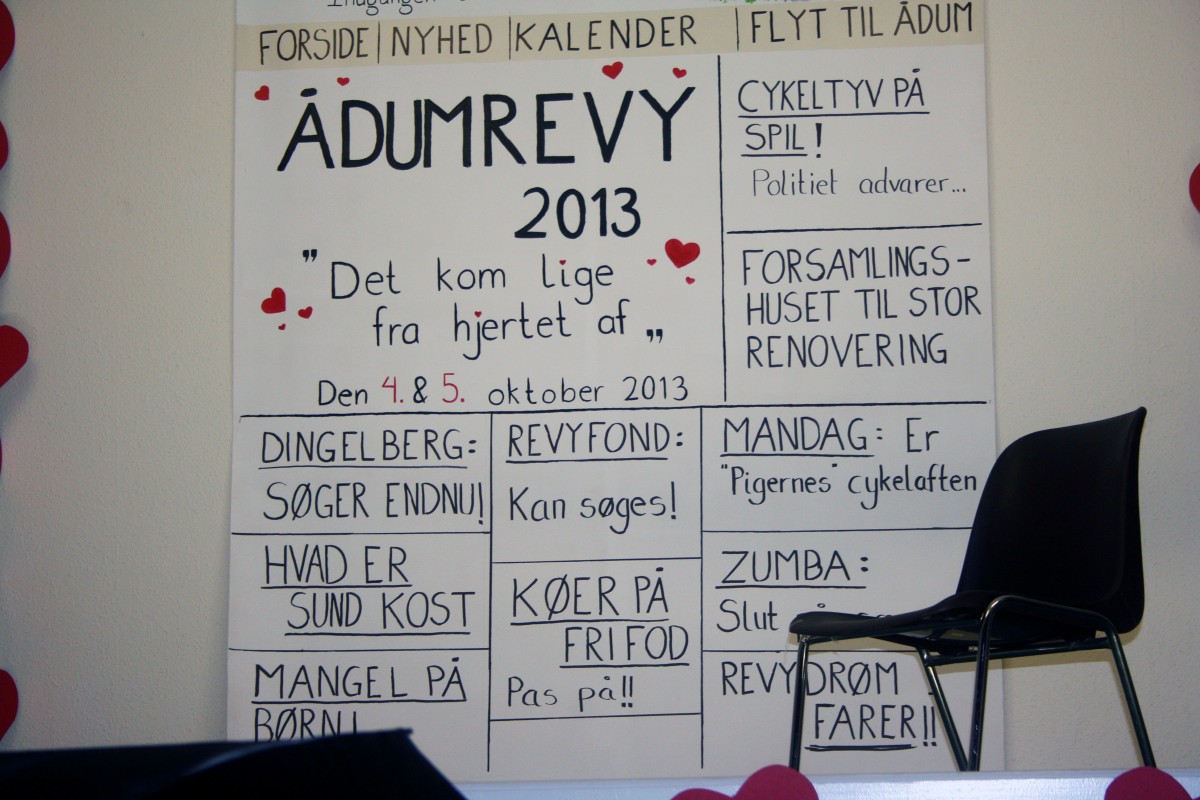 Indgangen
FORSIDE | NYHED | KALENDER | FLYT TIL ÅDUM
ÅDUMREVY
2013
"Det kom lige
fra hjertet af„
Den 4. & 5. oktober 2013
CYKELTYV PÅ
SPIL!
Politiet advarer...
FORSAMLINGS-
HUSET TIL STOR
RENOVERING
DINGELBERG:
SØGER ENDNU!
HVAD ER
SUND KOST
MANGEL PÅ
BØRN!
REVYFOND:
Kan søges!
KØER PÅ
FRI FOD
Pas på!!
MANDAG: Er
"Pigernes" cykelaften
ZUMBA:
Slut
REVYDRØM
FARER!!